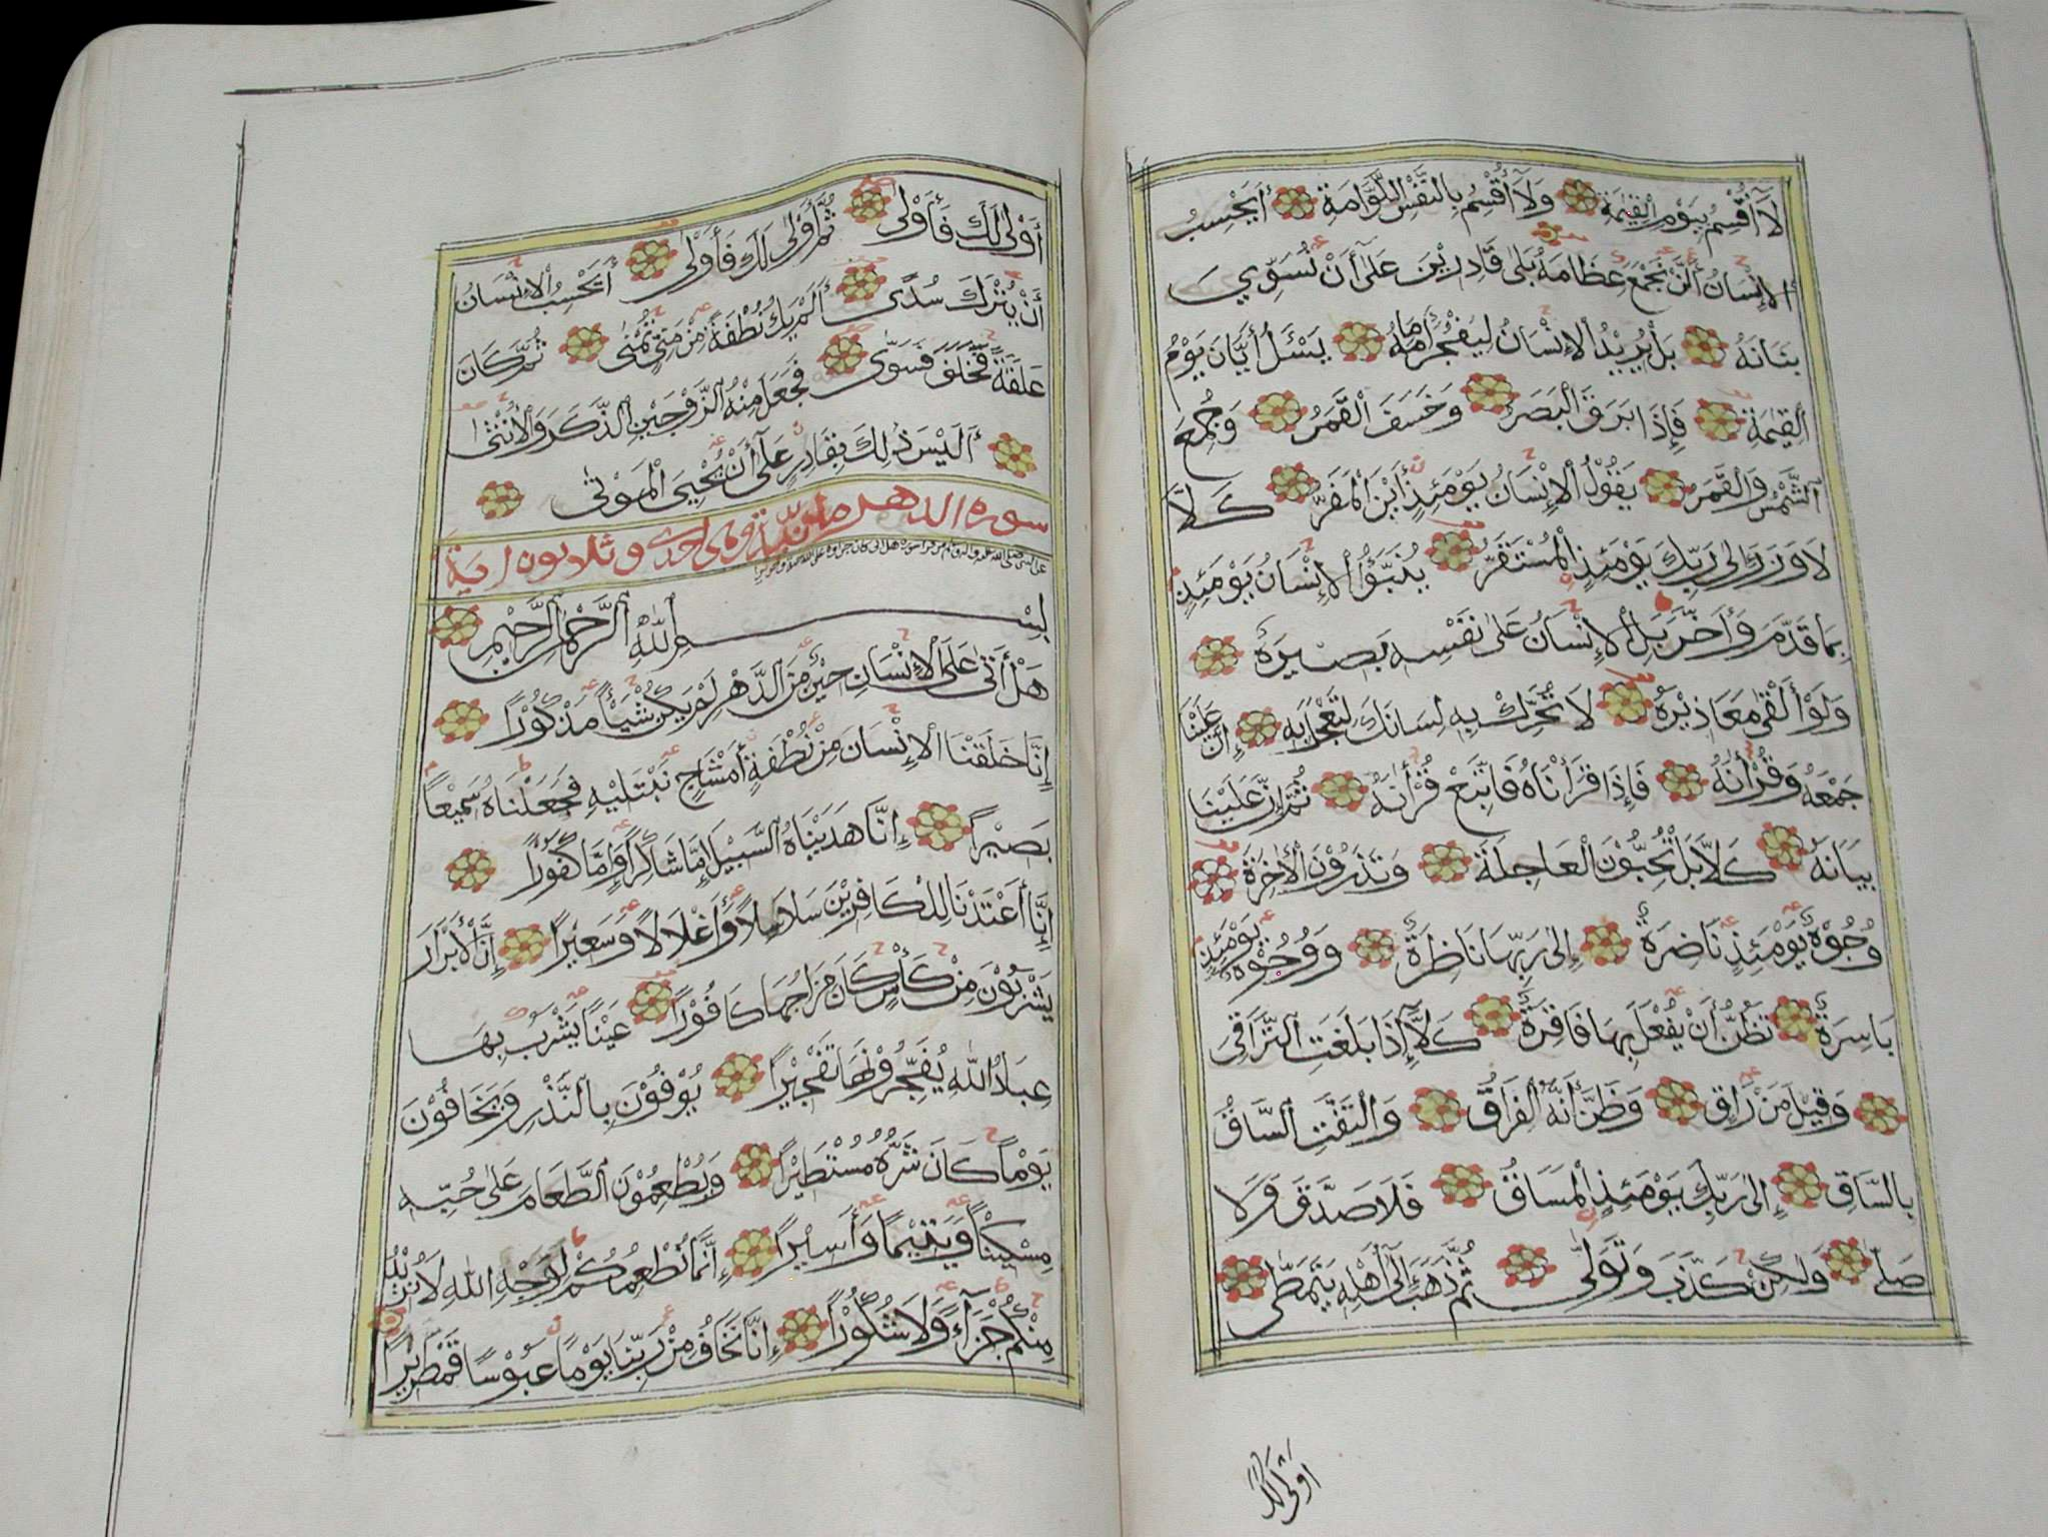 لَآ أُقْسِمُ بِيَوْمِ الْقِيٰمَةِ وَلَآ أُقْسِمُ بِالنَّفْسِ اللَّوَّامَةِ أَيَحْسِبُ
الْإِنْسَانُ أَلَّنْ نَجْمَعَ عِظَامَهُ بَلَىٰ قَادِرِيْنَ عَلَىٰ أَنْ نُسَوِّيَ
بَنَانَهُ بَلْ يُرِيْدُ الْإِنْسَانُ لِيَفْجُرَ أَمَامَهُ يَسْـَٔلُ أَيَّانَ يَوْمُ
الْقِيٰمَةِ فَإِذَا بَرَقَ الْبَصَرُ وَخَسَفَ الْقَمَرُ وَجُمِعَ
الشَّمْسُ وَالْقَمَرُ يَقُوْلُ الْإِنْسَانُ يَوْمَئِذٍ أَيْنَ الْمَفَرُّ كَلَّا
لَا وَزَرَ إِلَىٰ رَبِّكَ يَوْمَئِذٍ الْمُسْتَقَرُّ يُنَبَّؤُا الْإِنْسَانُ يَوْمَئِذٍ
بِمَا قَدَّمَ وَأَخَّرَ بَلِ الْإِنْسَانُ عَلَىٰ نَفْسِهِ بَصِيْرَةٌ
وَلَوْ أَلْقَىٰ مَعَاذِيْرَهُ لَا تُحَرِّكْ بِهِ لِسَانَكَ لِتَعْجَلَ بِهِ إِنَّ عَلَيْنَا
جَمْعَهُ وَقُرْأٰنَهُ فَإِذَا قَرَأْنَاهُ فَاتَّبِعْ قُرْأٰنَهُ ثُمَّ إِنَّ عَلَيْنَا
بَيَانَهُ كَلَّا بَلْ تُحِبُّوْنَ الْعَاجِلَةَ وَتَذَرُوْنَ الْأٰخِرَةَ
وُجُوْهٌ يَوْمَئِذٍ نَاضِرَةٌ إِلَىٰ رَبِّهَا نَاظِرَةٌ وَوُجُوْهٌ يَوْمَئِذٍ
بَاسِرَةٌ تَظُنُّ أَنْ يُفْعَلَ بِهَا فَاقِرَةٌ كَلَّآ إِذَا بَلَغَتِ التَّرَاقِيَ
وَقِيْلَ مَنْ رَاقٍ وَظَنَّ أَنَّهُ الْفِرَاقُ وَالْتَفَّتِ السَّاقُ
بِالسَّاقِ إِلَىٰ رَبِّكَ يَوْمَئِذٍ الْمَسَاقُ فَلَا صَدَّقَ وَلَا
صَلَّىٰ وَلٰكِنْ كَذَّبَ وَتَوَلَّىٰ ثُمَّ ذَهَبَ إِلَىٰ أَهْلِهِ يَتَمَطَّىٰ
أولى لك
أَوْلَىٰ لَكَ فَأَوْلَىٰ ثُمَّ أَوْلَىٰ لَكَ فَأَوْلَىٰ أَيَحْسِبُ الْإِنْسَانُ
أَنْ يُتْرَكَ سُدًى أَلَمْ يَكُ نُطْفَةً مِنْ مَنِيٍّ تُمْنَىٰ ثُمَّ كَانَ
عَلَقَةً فَخَلَقَ فَسَوَّىٰ فَجَعَلَ مِنْهُ الزَّوْجَيْنِ الذَّكَرَ وَالْأُنْثَىٰ
أَلَيْسَ ذٰلِكَ بِقَادِرٍ عَلَىٰ أَنْ يُحْيِيَ الْمَوْتَىٰ
سورة الدهر مدنية وهي احدى وثلاثون اية
بِسْمِ اللّٰهِ الرَّحْمٰنِ الرَّحِيْمِ
هَلْ أَتَىٰ عَلَى الْإِنْسَانِ حِيْنٌ مِنَ الدَّهْرِ لَمْ يَكُنْ شَيْئًا مَذْكُوْرًا
إِنَّا خَلَقْنَا الْإِنْسَانَ مِنْ نُطْفَةٍ أَمْشَاجٍ نَبْتَلِيْهِ فَجَعَلْنَاهُ سَمِيْعًا
بَصِيْرًا إِنَّا هَدَيْنَاهُ السَّبِيْلَ إِمَّا شَاكِرًا وَإِمَّا كَفُوْرًا
إِنَّا أَعْتَدْنَا لِلْكَافِرِيْنَ سَلَاسِلًا وَأَغْلَالًا وَسَعِيْرًا إِنَّ الْأَبْرَارَ
يَشْرَبُوْنَ مِنْ كَأْسٍ كَانَ مِزَاجُهَا كَافُوْرًا عَيْنًا يَشْرَبُ بِهَا
عِبَادُ اللّٰهِ يُفَجِّرُوْنَهَا تَفْجِيْرًا يُوْفُوْنَ بِالنَّذْرِ وَيَخَافُوْنَ
يَوْمًا كَانَ شَرُّهُ مُسْتَطِيْرًا وَيُطْعِمُوْنَ الطَّعَامَ عَلَىٰ حُبِّهِ
مِسْكِيْنًا وَيَتِيْمًا وَأَسِيْرًا إِنَّمَا نُطْعِمُكُمْ لِوَجْهِ اللّٰهِ لَا نُرِيْدُ
مِنْكُمْ جَزَآءً وَلَا شُكُوْرًا إِنَّا نَخَافُ مِنْ رَبِّنَا يَوْمًا عَبُوْسًا قَمْطَرِيْرًا